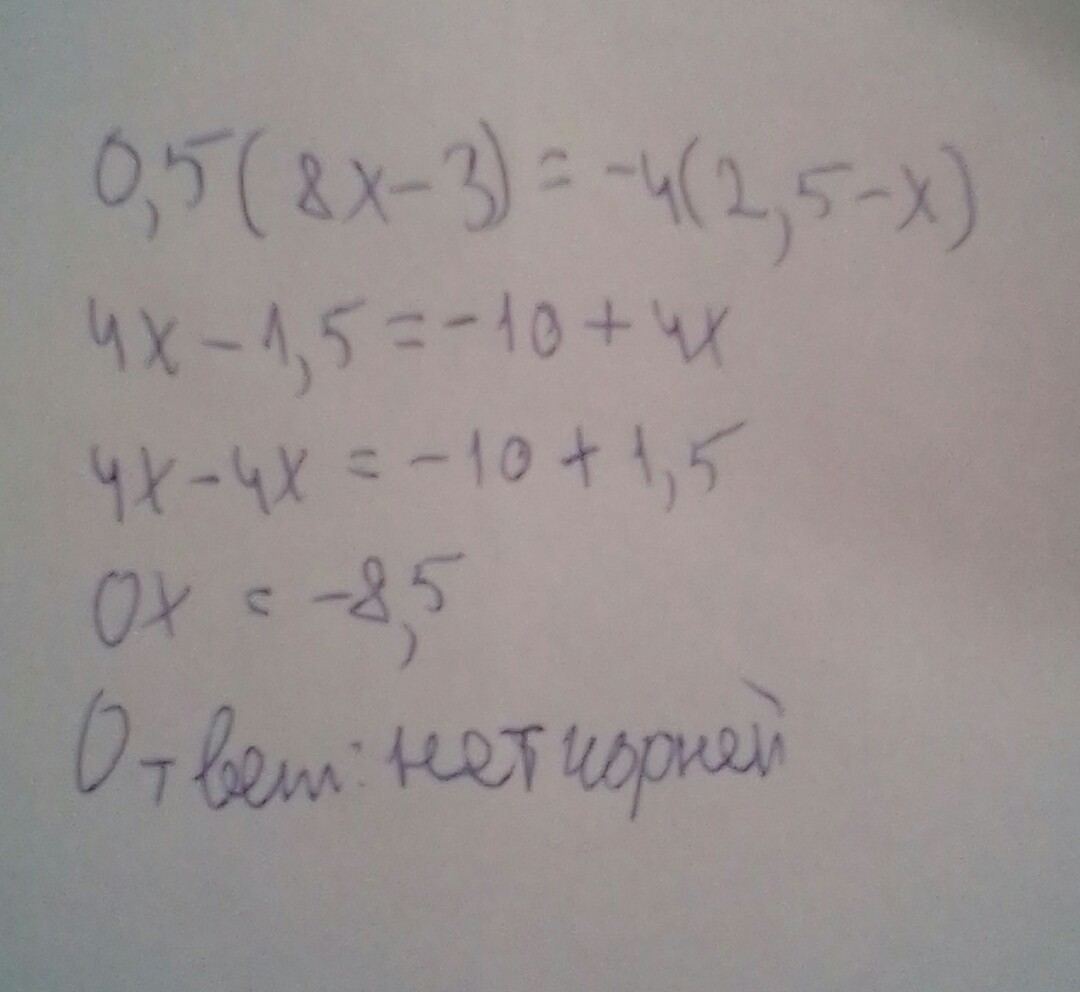 0,5(8x-3)=-4(2,5-x)
4x-1,5=-10+4x
4x-4x=-10+1,5
0x=-8,5
Ответ: нет корней